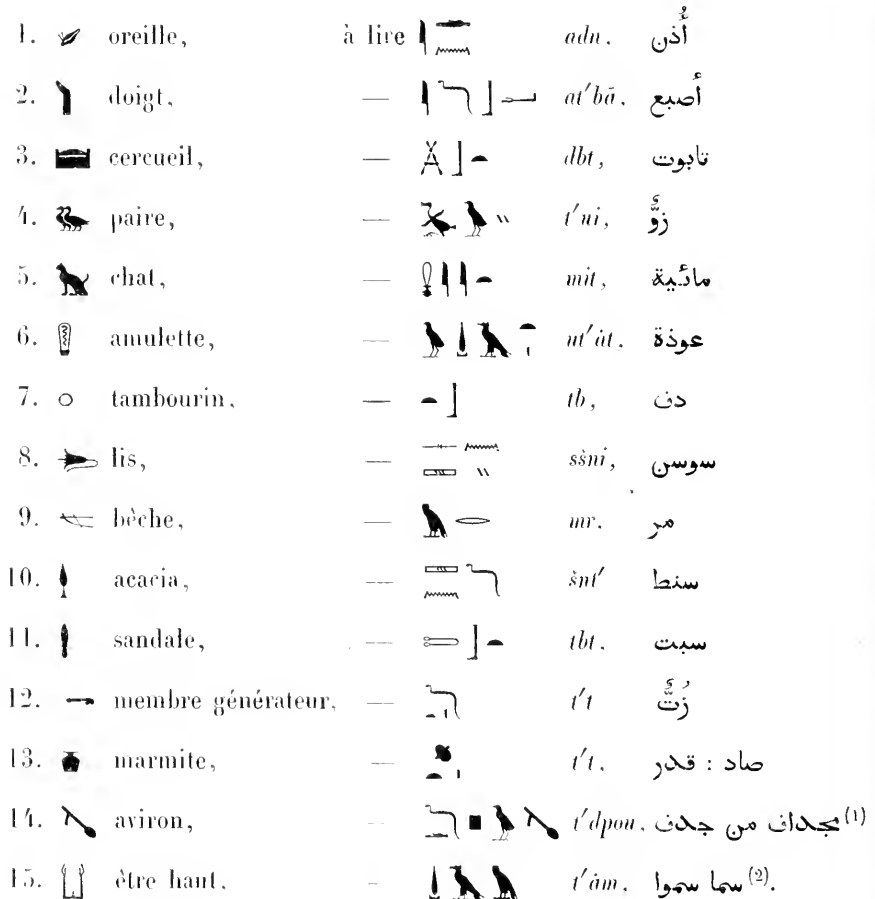 1. oreille, à lire adn. أُذن
2. doigt, — at′bā. أصبع
3. cercueil, — dbt, تابوت
4. paire, — t′ui, زوَّ
5. chat, — mit, مائية
6. amulette, — ut′ȧt. عوذة
7. tambourin, — tb, دف
8. lis, — sšni, سوسن
9. bèche, — mr. مر
10. acacia, — šnt′ سنط
11. sandale, — tbt. سبت
12. membre générateur, — t′t زُبَّ
13. marmite, — t′t. صاد : قدر
14. aviron, — t′dpou. مجداف من جدف (1)
15. être haut, — t′ȧm. سما سموا (2).